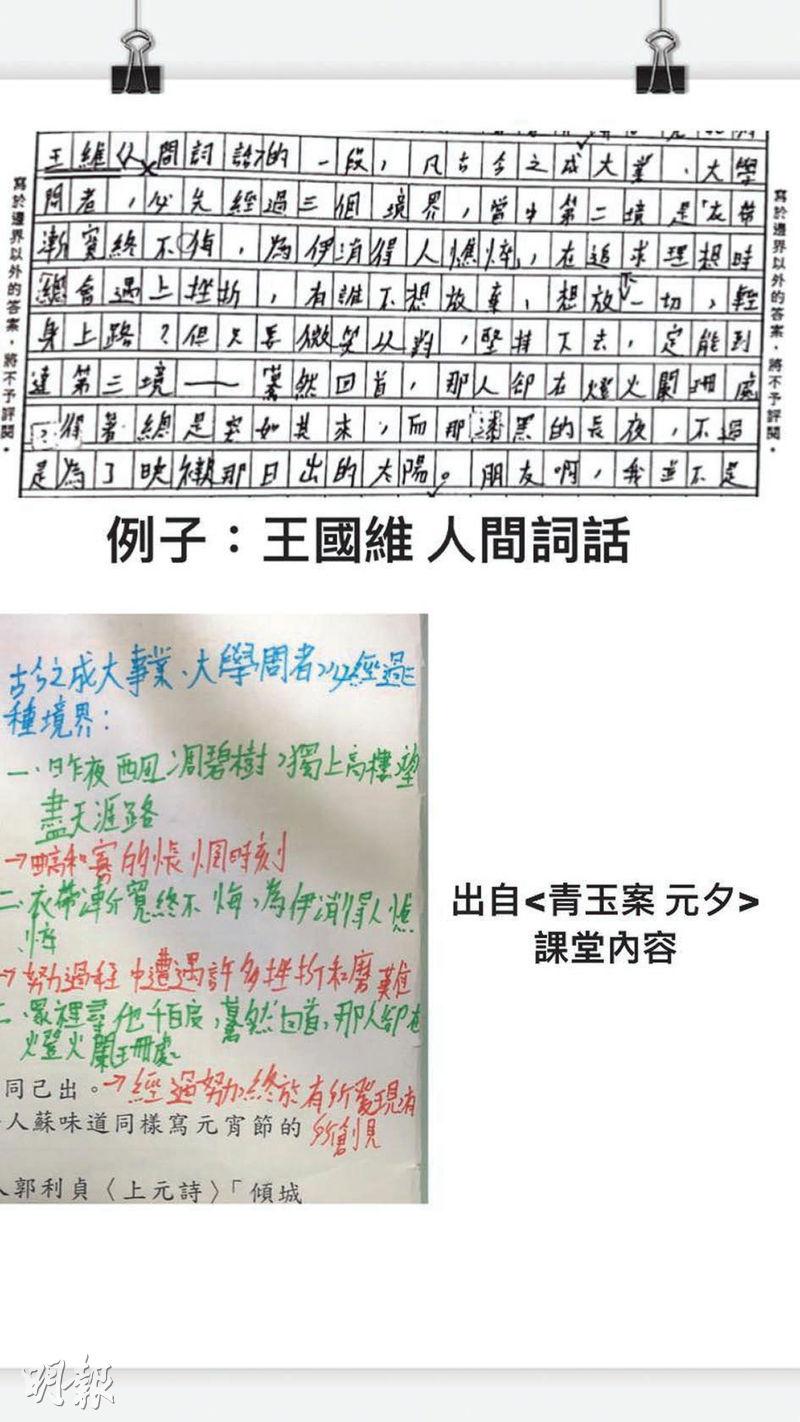 王維《人間詞話》的一段，凡古今之成大業、大學
問者，必先經過三個境界，當中第二境是「衣帶
漸寬終不悔，為伊消得人憔悴」，在追求理想時
總會遇上挫折，有誰不想放棄，想放下一切，輕
身上路？但只要微笑以對，堅持下去，定能到
達第三境——驀然回首，那人卻在燈火闌珊處
得著總是突如其來，而那漆黑的長夜，不過
是為了映襯那日出的太陽。朋友啊，我並不是
寫於邊界以外的答案，將不予評閱。
寫於邊界以外的答案，將不予評閱。
例子：王國維 人間詞話
古今之成大事業、大學問者，必經過三
種境界：
一、昨夜西風凋碧樹，獨上高樓望
盡天涯路
的悵惘時刻
二、衣帶漸寬終不悔，為伊消得人憔
悴
→努力過程中遭遇許多挫折和磨難
三、眾裡尋他千百度，驀然回首，那人卻在
燈火闌珊處
同己出。→經過努力終於有所發現有
所創見
人蘇味道同樣寫元宵節的
人郭利貞〈上元詩〉「傾城
出自<青玉案 元夕>
課堂內容
明報